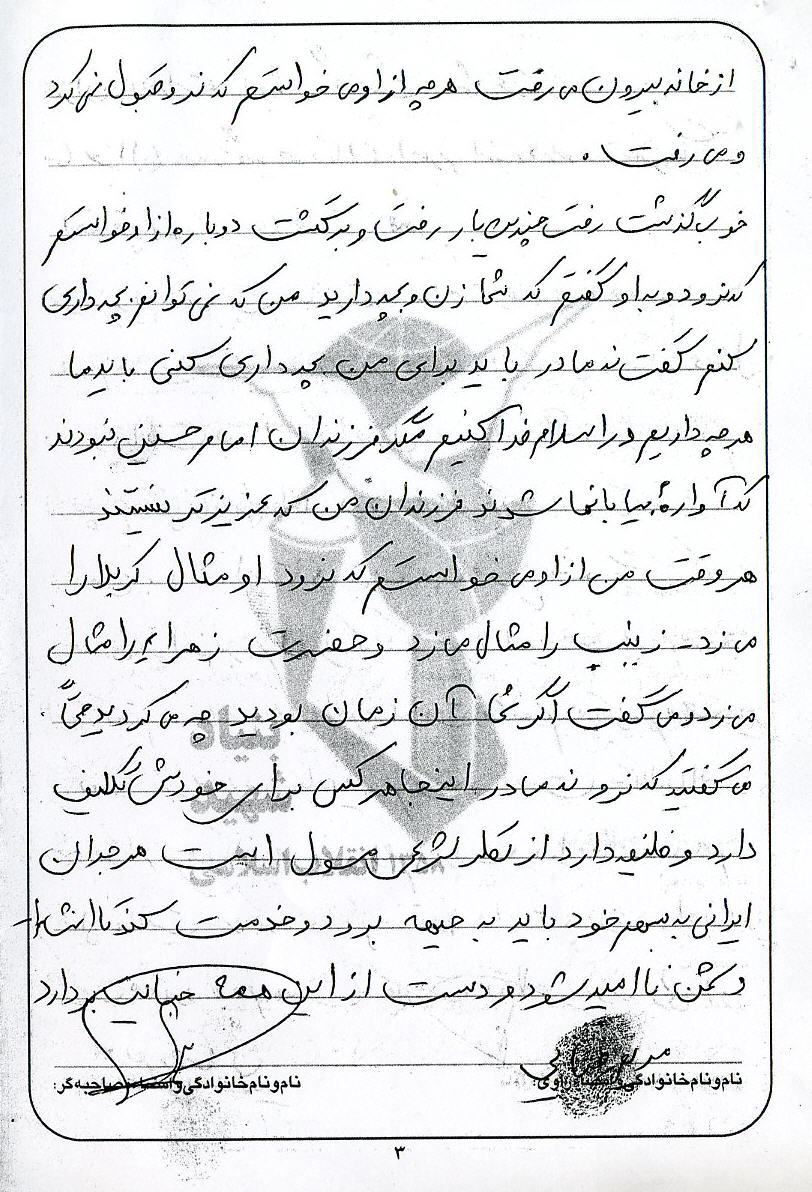 از خانه بیرون می رفت هرچه از او می خواستم که نرود قبول نمی کرد
و می رفت .
خوب گذشت رفت چندین بار رفت و برگشت دوباره از او خواستم
که نرود و به او گفتم که شما زن و بچه دارید من که نمی توانم بچه داری
کنم گفت نه مادر باید برای من بچه داری کنی باید ما
هرچه داریم در اسلام فدا کنیم مگر فرزندان امام حسین نبودند
که آواره بیابانها شدند فرزندان من که عزیزتر نیستند
هر وقت من از او می خواستم که نرود او مثال کربلا را
می زد ـ زینب را مثال می زد و حضرت زهرا را مثال
می زد و می گفت اگر شما آن زمان بودید چه می کردید حتماً
می گفتید که نرو نه مادر اینجا هرکس برای خودش تکلیف
دارد وظیفه دارد از نظر شرعی مسول است هر جوان
ایرانی به سهم خود باید به جبهه برود و خدمت کند تا انشاا-
دشمن نا امید شود و دست از این همه خیانت بردارد
نام و نام خانوادگی و امضاء راوی:
نام و نام خانوادگی و امضاء مصاحبه گر:
بنیاد
شهید
انقلاب اسلامی
۳